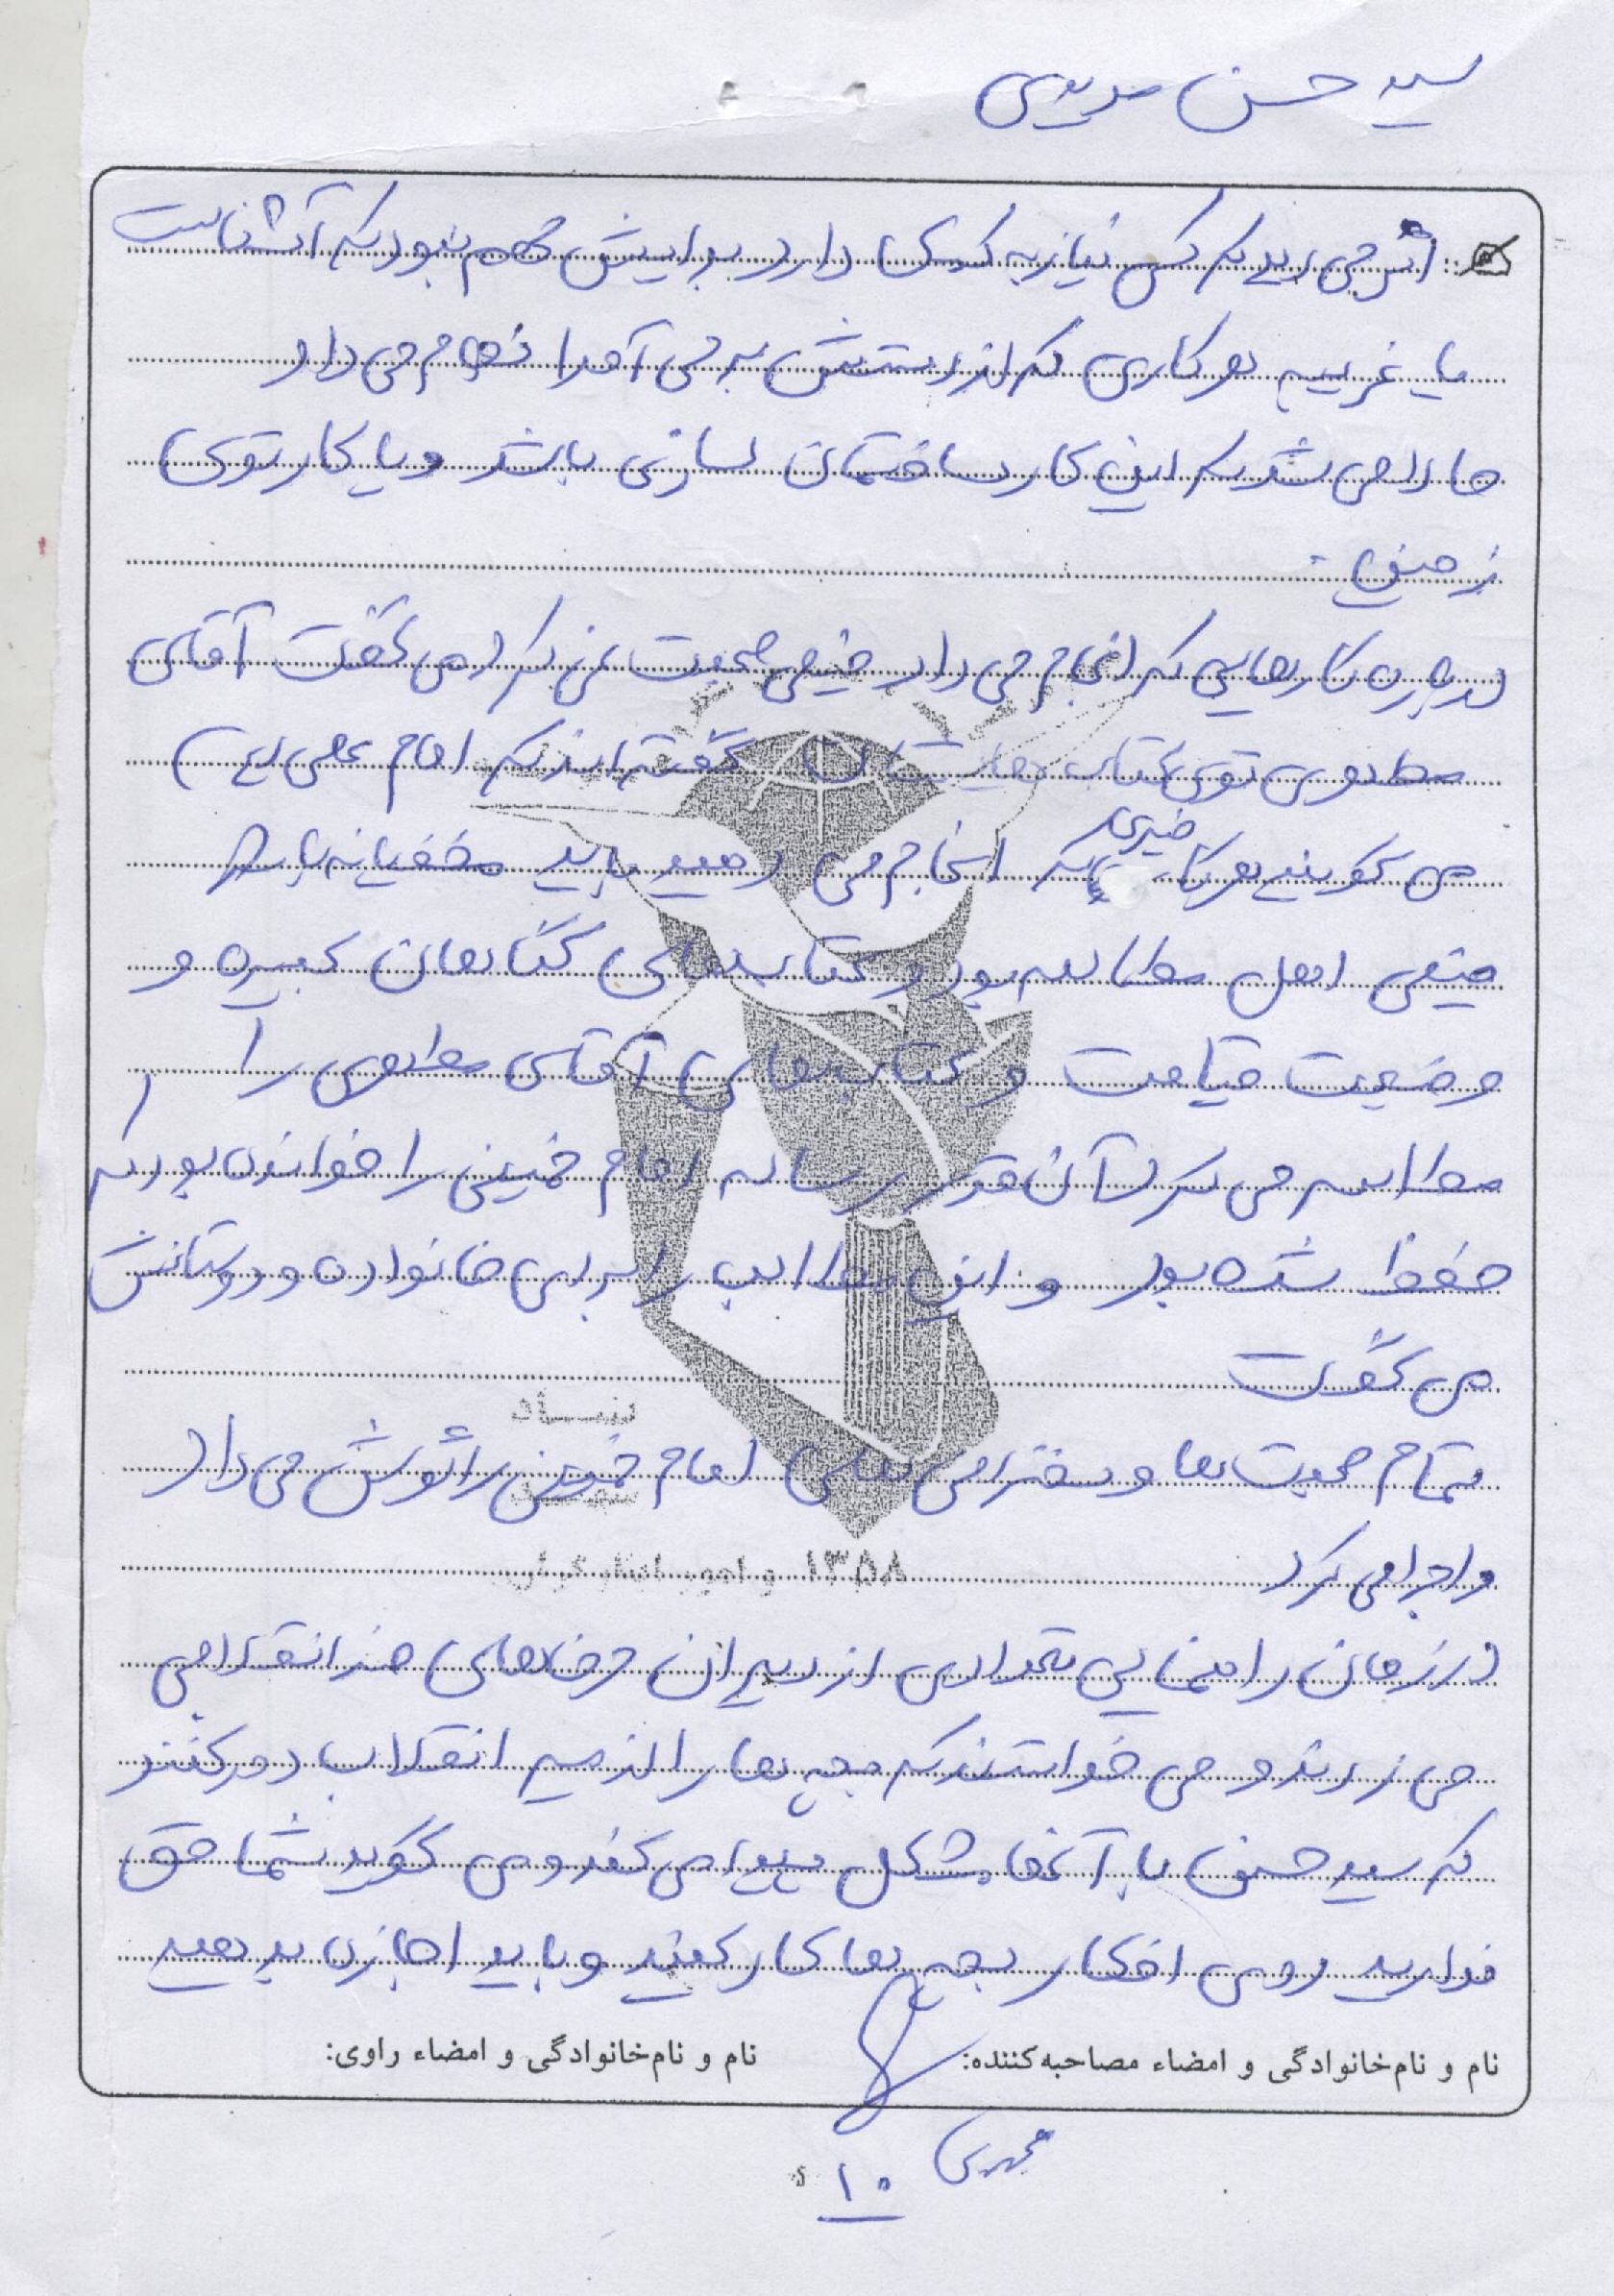 سید حسن
اگر می دید که کسی نیاز به کمک دارد برایش مهم نبود که آشناست
یا غریبه هر کاری که از دستش بر می آمد انجام می داد
حالا می شد که این کار ساختمان سازی باشد و یا کار توی
زمین.
درباره کارهایی که انجام می داد خیلی صحبت نمی کرد می گفت آقای
مطهری توی کتاب هایشان گفته اند که امام علی (ع)
می گویند هر کار خیری که انجام می دهید باید مخفیانه باشد
خیلی اهل مطالعه بود و کتاب های گناهان کبیره و
وضعیت قیامت و کتاب های آقای مطهری را
مطالعه می کرد آن قدر رساله امام خمینی را خوانده بود که
حفظ شده بود و این مطالب را برای خانواده و دوستانش
می گفت
تمام صحبت ها و سخنرانی های امام خمینی را گوش می داد
و اجرا می کرد
در زمان راهنمایی تعدادی از دبیران حرف های ضد انقلابی
می زدند و می خواستند که بچه ها را از مسیر انقلاب دور کنند
که سید حسن با آنها مشکل پیدا می کند و می گوید شما حق
ندارید روی افکار بچه ها کار کنید و باید اجازه بدهید
نام و نام‌خانوادگی و امضاء مصاحبه‌کننده:
نام و نام‌خانوادگی و امضاء راوی:
۱۰
بنیاد
۱۳۵۸ و امور ایثارگران